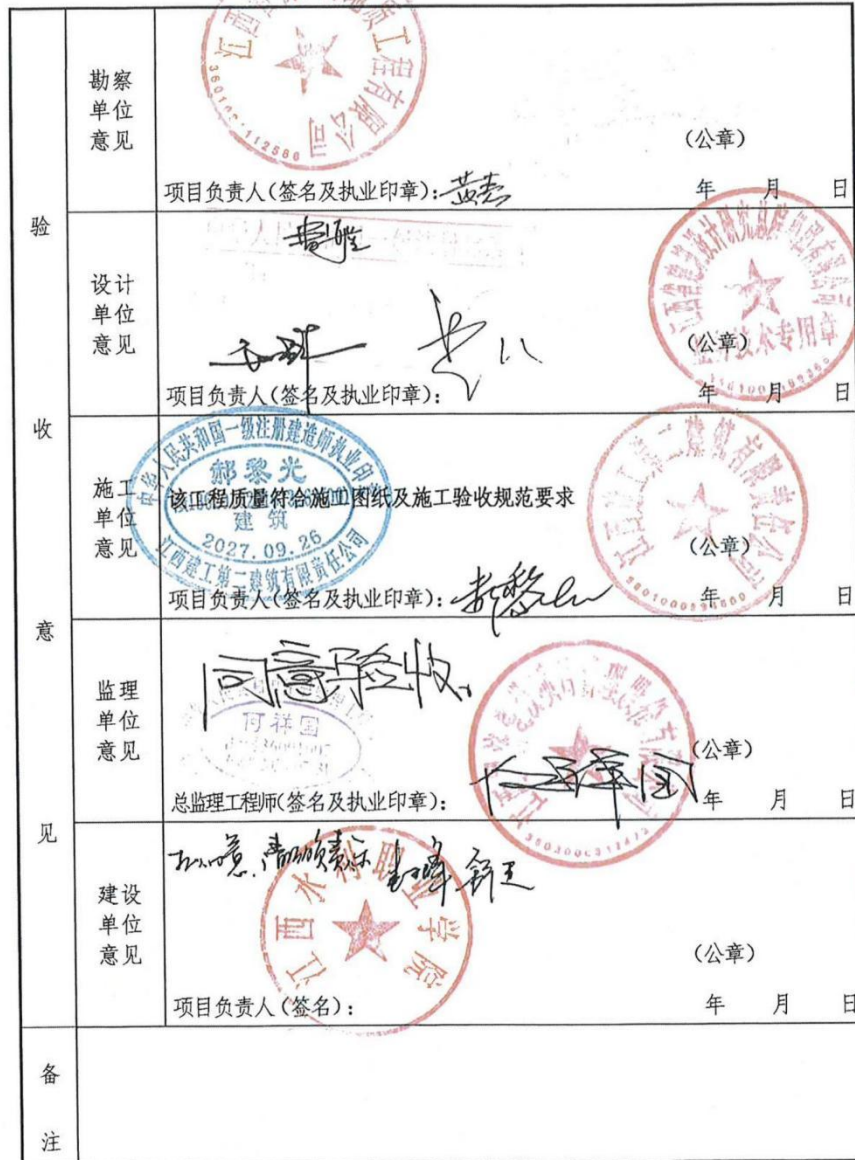 验收意见
勘察单位意见
工程有限公司
112586
(公章)
项目负责人(签名及执业印章):
年 月 日
设计单位意见
技术专用章
(公章)
项目负责人(签名及执业印章):
年 月 日
施工单位意见
中华人民共和国一级注册建造师执业印章
郝黎光
建筑
2027.09.26
江西建工第二建筑有限责任公司
该工程质量符合施工图纸及施工验收规范要求
江西建工第二建筑有限责任公司
(公章)
项目负责人(签名及执业印章):
年 月 日
监理单位意见
同意验收
何祥国
(公章)
总监理工程师(签名及执业印章):
何祥国
年 月 日
建设单位意见
江西水利职业学院
(公章)
项目负责人(签名):
年 月 日
备注